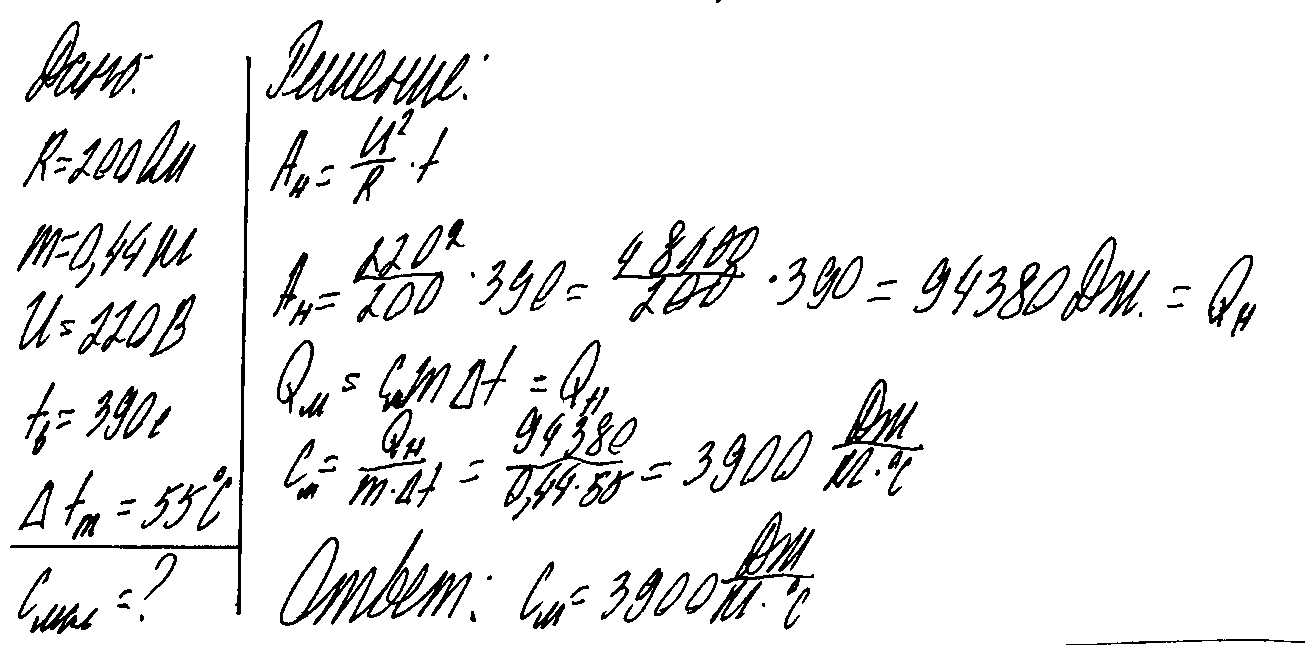 Дано:
R=200Ом
m=0,44кг
U=220В
t_в=390с
Δt_m=55°C
C_мол=?
Решение:
A_н=U²/R·t
A_н=220²/200·390=48400/200·390=94380Дж.=Q_н
Q_м=C_м m Δt=Q_н
C_м=Q_н/m·Δt=94380/0,44·55=3900 Дж/кг·°C
Ответ: C_м=3900 Дж/кг·°C